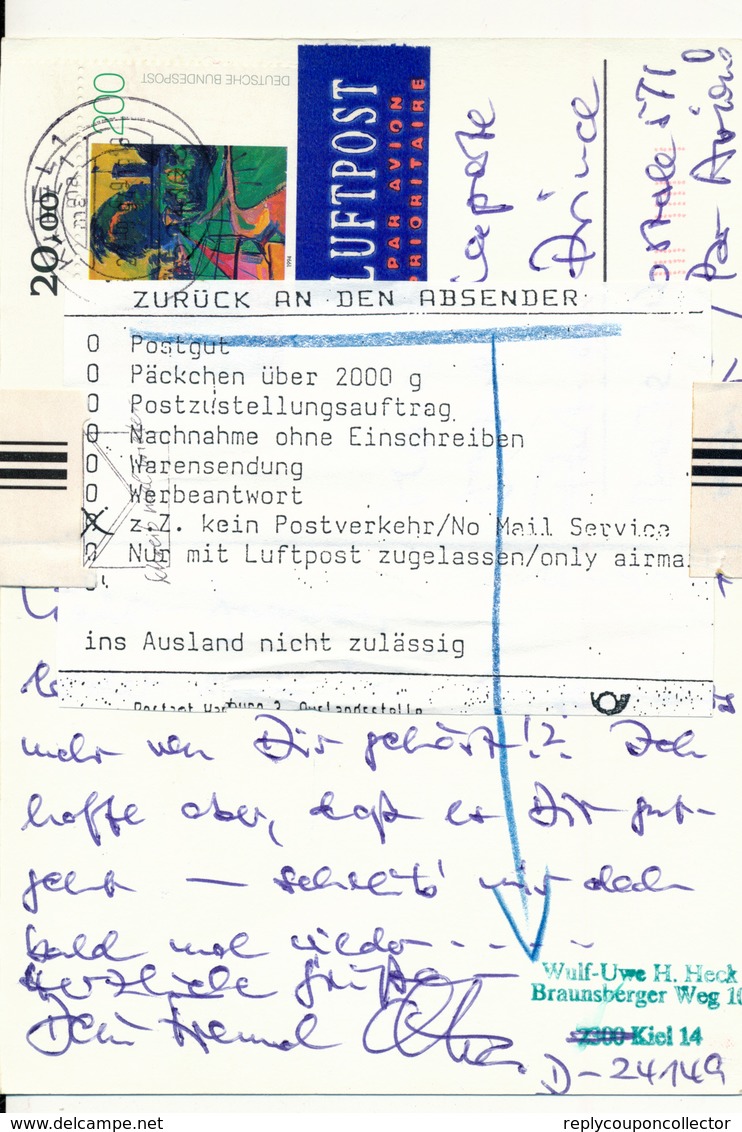 DEUTSCHE BUNDESPOST
200
20,00
1994
LUFTPOST
PAR AVION
PRIORITAIRE
Prince
ZURÜCK AN DEN ABSENDER
O Postgut
O Päckchen über 2000 g
O Postzustellungsauftrag
O Nachnahme ohne Einschreiben
O Warensendung
O Werbeantwort
O z.Z. kein Postverkehr/No Mail Service
O Nur mit Luftpost zugelassen/only airma
ins Ausland nicht zulässig
mehr von Dir gehört!? Ich
hoffe aber, daß es Dir gut-
geht — schreib' mir doch
bald mal wieder - - - -
Herzliche Grüße —
Dein Freund
Wulf-Uwe H. Heck
Braunsberger Weg 10
2300 Kiel 14
D-24149
replycouponcollector